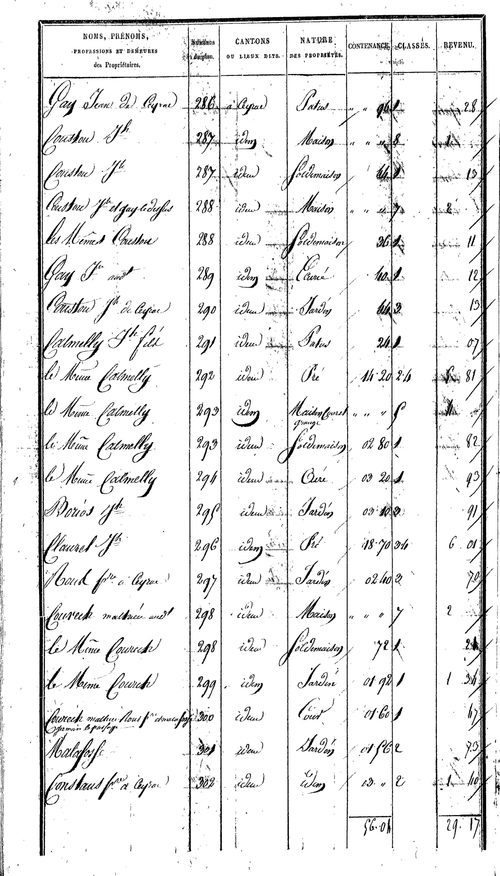 NOMS, PRÉNOMS, PROFESSIONS ET DEMEURES des Propriétaires. | CANTONS OU LIEUX DITS. | NATURE DES PROPRIÉTÉS. | CONTENANCE. | CLASSES. | REVENU.
Gay Jean de Ceyrac 286 à Ceyrac Patus " " 96 1 28
Couston Jh 287 idem Maison " " " 8 1
Couston Jh 287 idem Sol de maison 44 1 13
Couston Jh et Gay le dessus 288 idem Maison " " " 7 2
les Mêmes Couston 288 idem Sol de maison 36 1 11
Gay Jn 289 idem 40 1 12
Couston Jh de Ceyrac 290 idem Jardin 44 3 13
Calmelly Jh fils 291 idem Patus 24 1 07
le Même Calmelly 292 idem Pré 14 20 2 4 81
le Même Calmelly 293 idem Maison Cour et grange " " " 5
le Même Calmelly 293 idem Sol de maison 02 80 1 82
le Même Calmelly 294 idem 03 20 1 93
Boriés Jh 295 idem Jardin 03 10 3 91
Clauzel Jh 296 idem Pré 18 70 3 4 6 01
297 idem Jardin 02 40 3 70
Coureck 298 idem Maison " " " 7 2
le Même Coureck 298 idem Sol de maison 72 1 21
le Même Coureck 299 idem Jardin 01 92 1 1 34
Coureck 300 idem Cour 01 60 1 47
Malafosse 301 idem Jardin 01 56 2 73
Constans frre à Ceyrac 302 idem idem 03 " 2 1 40
56.04 29.17